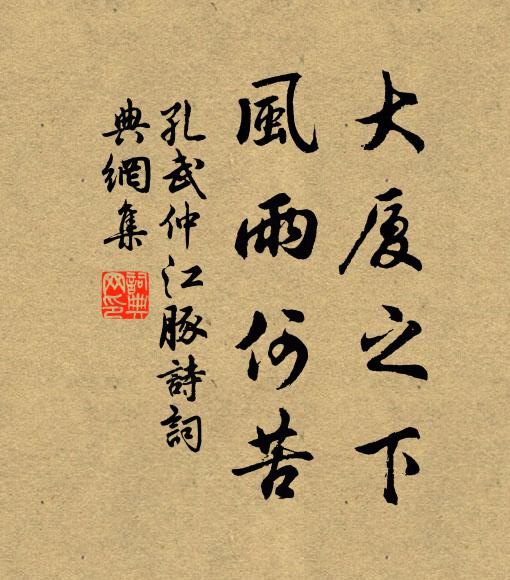 大厦之下
風雨何苦
孔武仲江豚詩詞
典網集
詞典網印